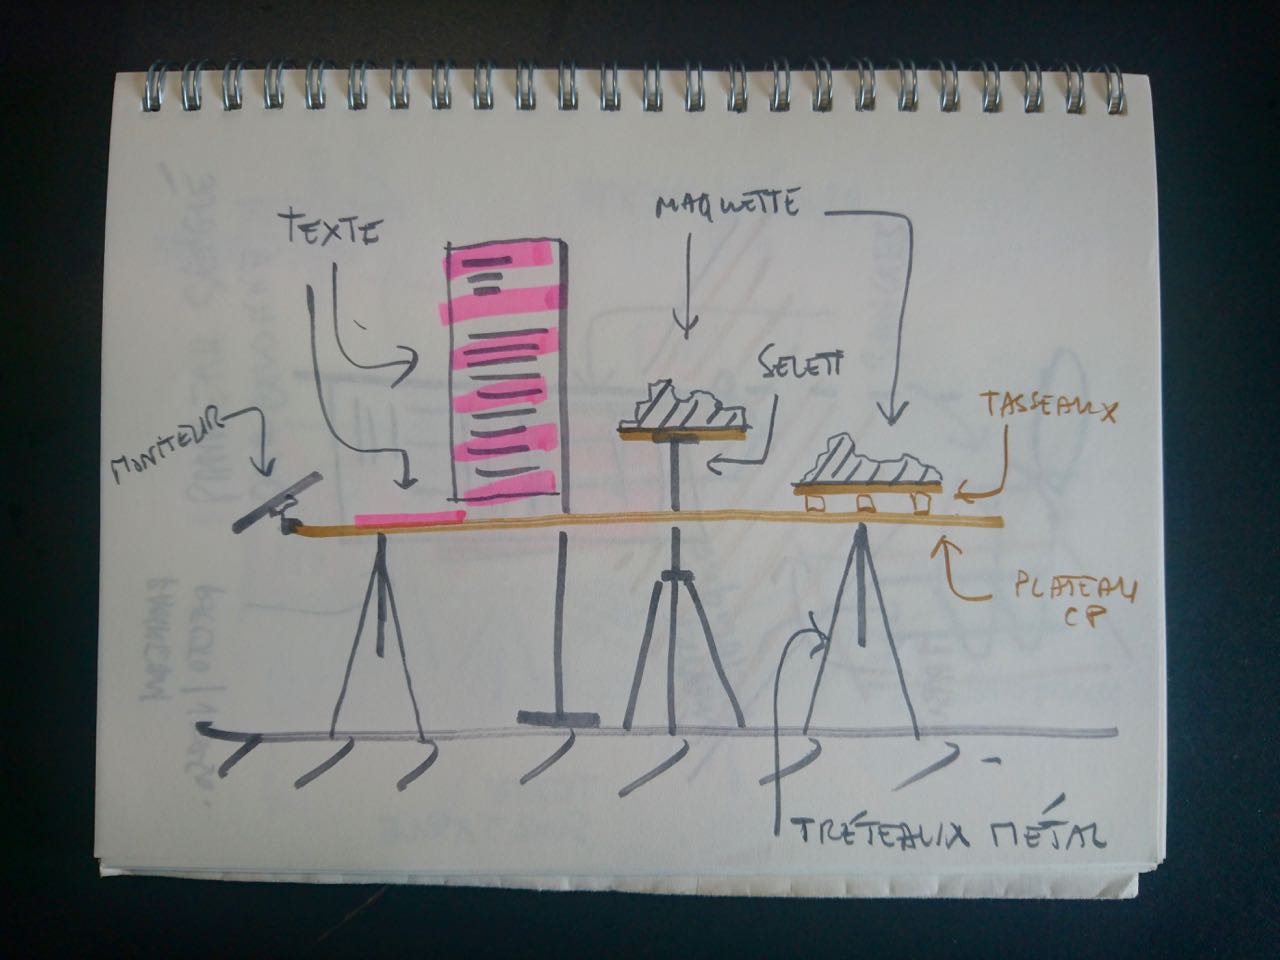 MAQUETTE
TEXTE
SELETT
MONITEUR
TASSEAUX
PLATEAU
CP
TRÉTEAUX MÉTAL